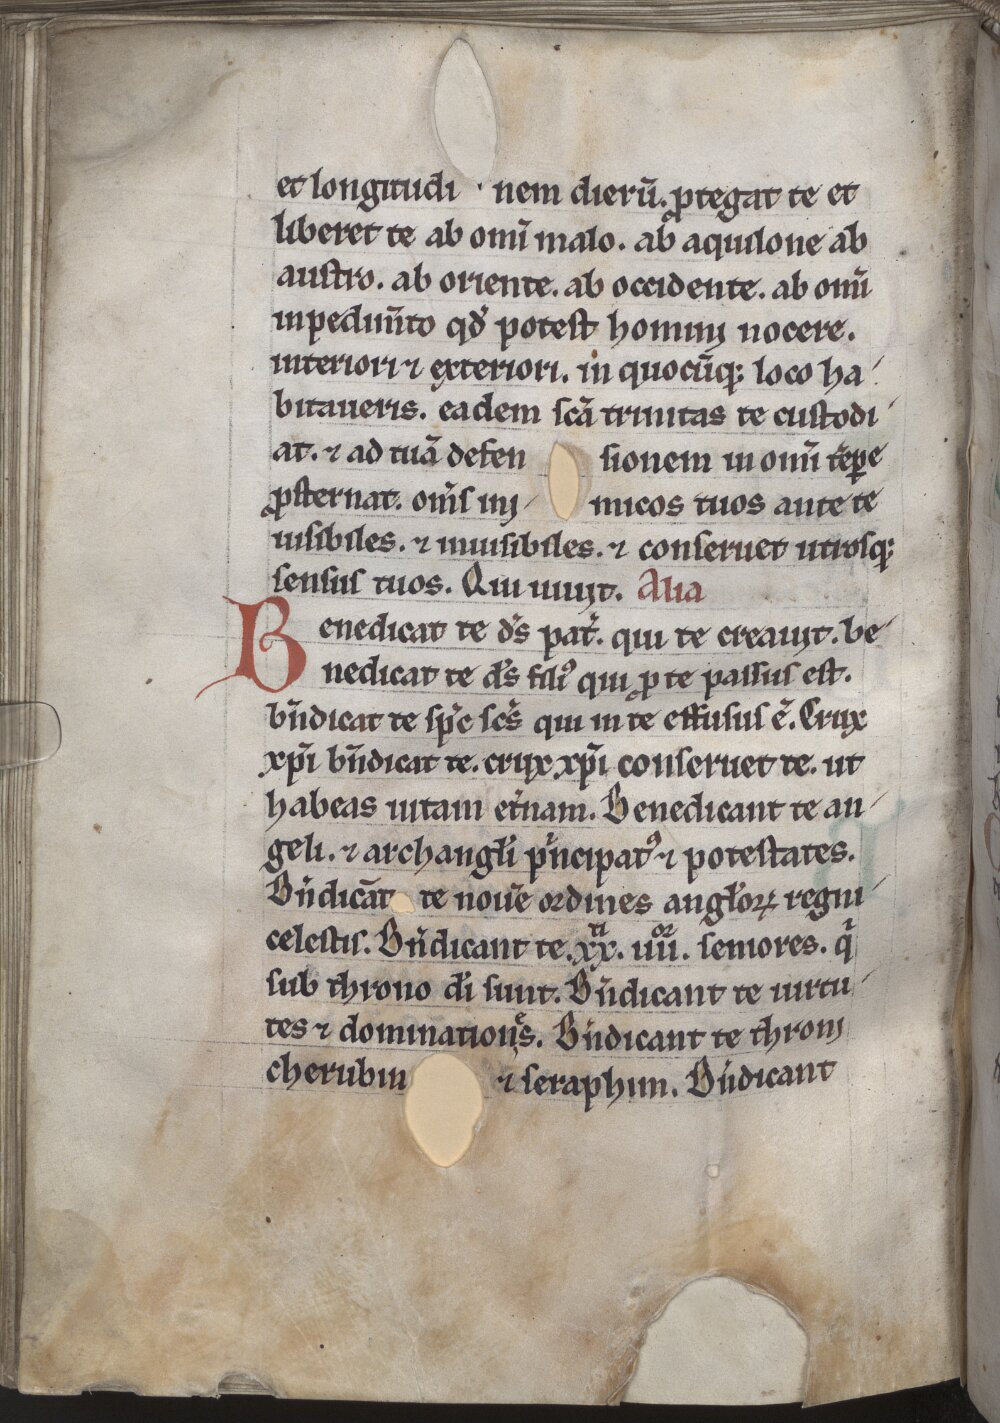 et longitudi nem dierū. ꝓtegat te et
liberet te ab om̄i malo. ab aquilone ab
austro. ab oriente. ab occidente. ab om̄i
inpedim̄to qd̄ potest homini nocere.
interiori ⁊ exteriori. in quocūqꝫ loco ha
bitaueris. eadem sc̄a trinitas te custodi
at. ⁊ ad tuā defen sionem in om̄i tēꝑe
ꝓsternat. om̄s ini micos tuos ante te
uisibiles. ⁊ inuisibiles. ⁊ conseruet utrosqꝫ
sensus tuos. Qui uiuit. Alia
Benedicat te d̄s pat̄. qui te creauit. be
nedicat te d̄s filiꝰ qui ꝓ te passus est.
bn̄dicat te sp̄c sc̄s qui in te effusus ē. Crux
xp̄i bn̄dicat te. crux xp̄i conseruet te. ut
habeas uitam et̄nam. Benedicant te an
geli. ⁊ archangl̄i pⁱncipatꝰ ⁊ potestates.
Bn̄dicāt te noūe ordines angl̄oꝝ regni
celestis. Bn̄dicant te. xxᵗⁱ. iiiiᵒʳ. seniores. qⁱ
sub throno dī sunt. Bn̄dicant te uirtu
tes ⁊ dominationēs. Bn̄dicant te throni
cherubin ⁊ seraphim. Bn̄dicant